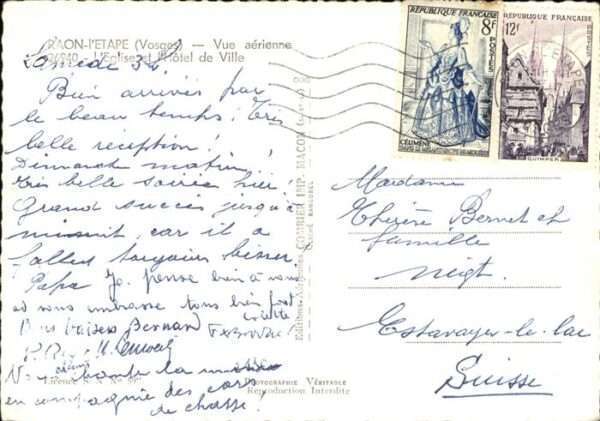 RAON-L'ETAPE (Vosges) — Vue aérienne
L'Eglise et l'Hôtel de Ville
Samedi
Bien arrivés par
le beau temps! Très
belle réception!
Dimanche matin!
Très belle soirée hier!
Grand succès jusqu'à
minuit, car il a
fallu toujours bisser.
Papa Jo. pense bien à vous
et vous embrasse tous bien fort
Bons baisers Bernard
chanter la messe
en compagnie des cors
de chasse!
PHOTOGRAPHIE VÉRITABLE
Reproduction Interdite
Editions Aériennes COMBIER IMP. MACON
REPUBLIQUE FRANÇAISE
8F
POSTES
CELIMENE
REPUBLIQUE FRANÇAISE
12F
QUIMPER
Madame
Thérèse Bernet et
famille
négt.
Estavayer-le-lac
Suisse